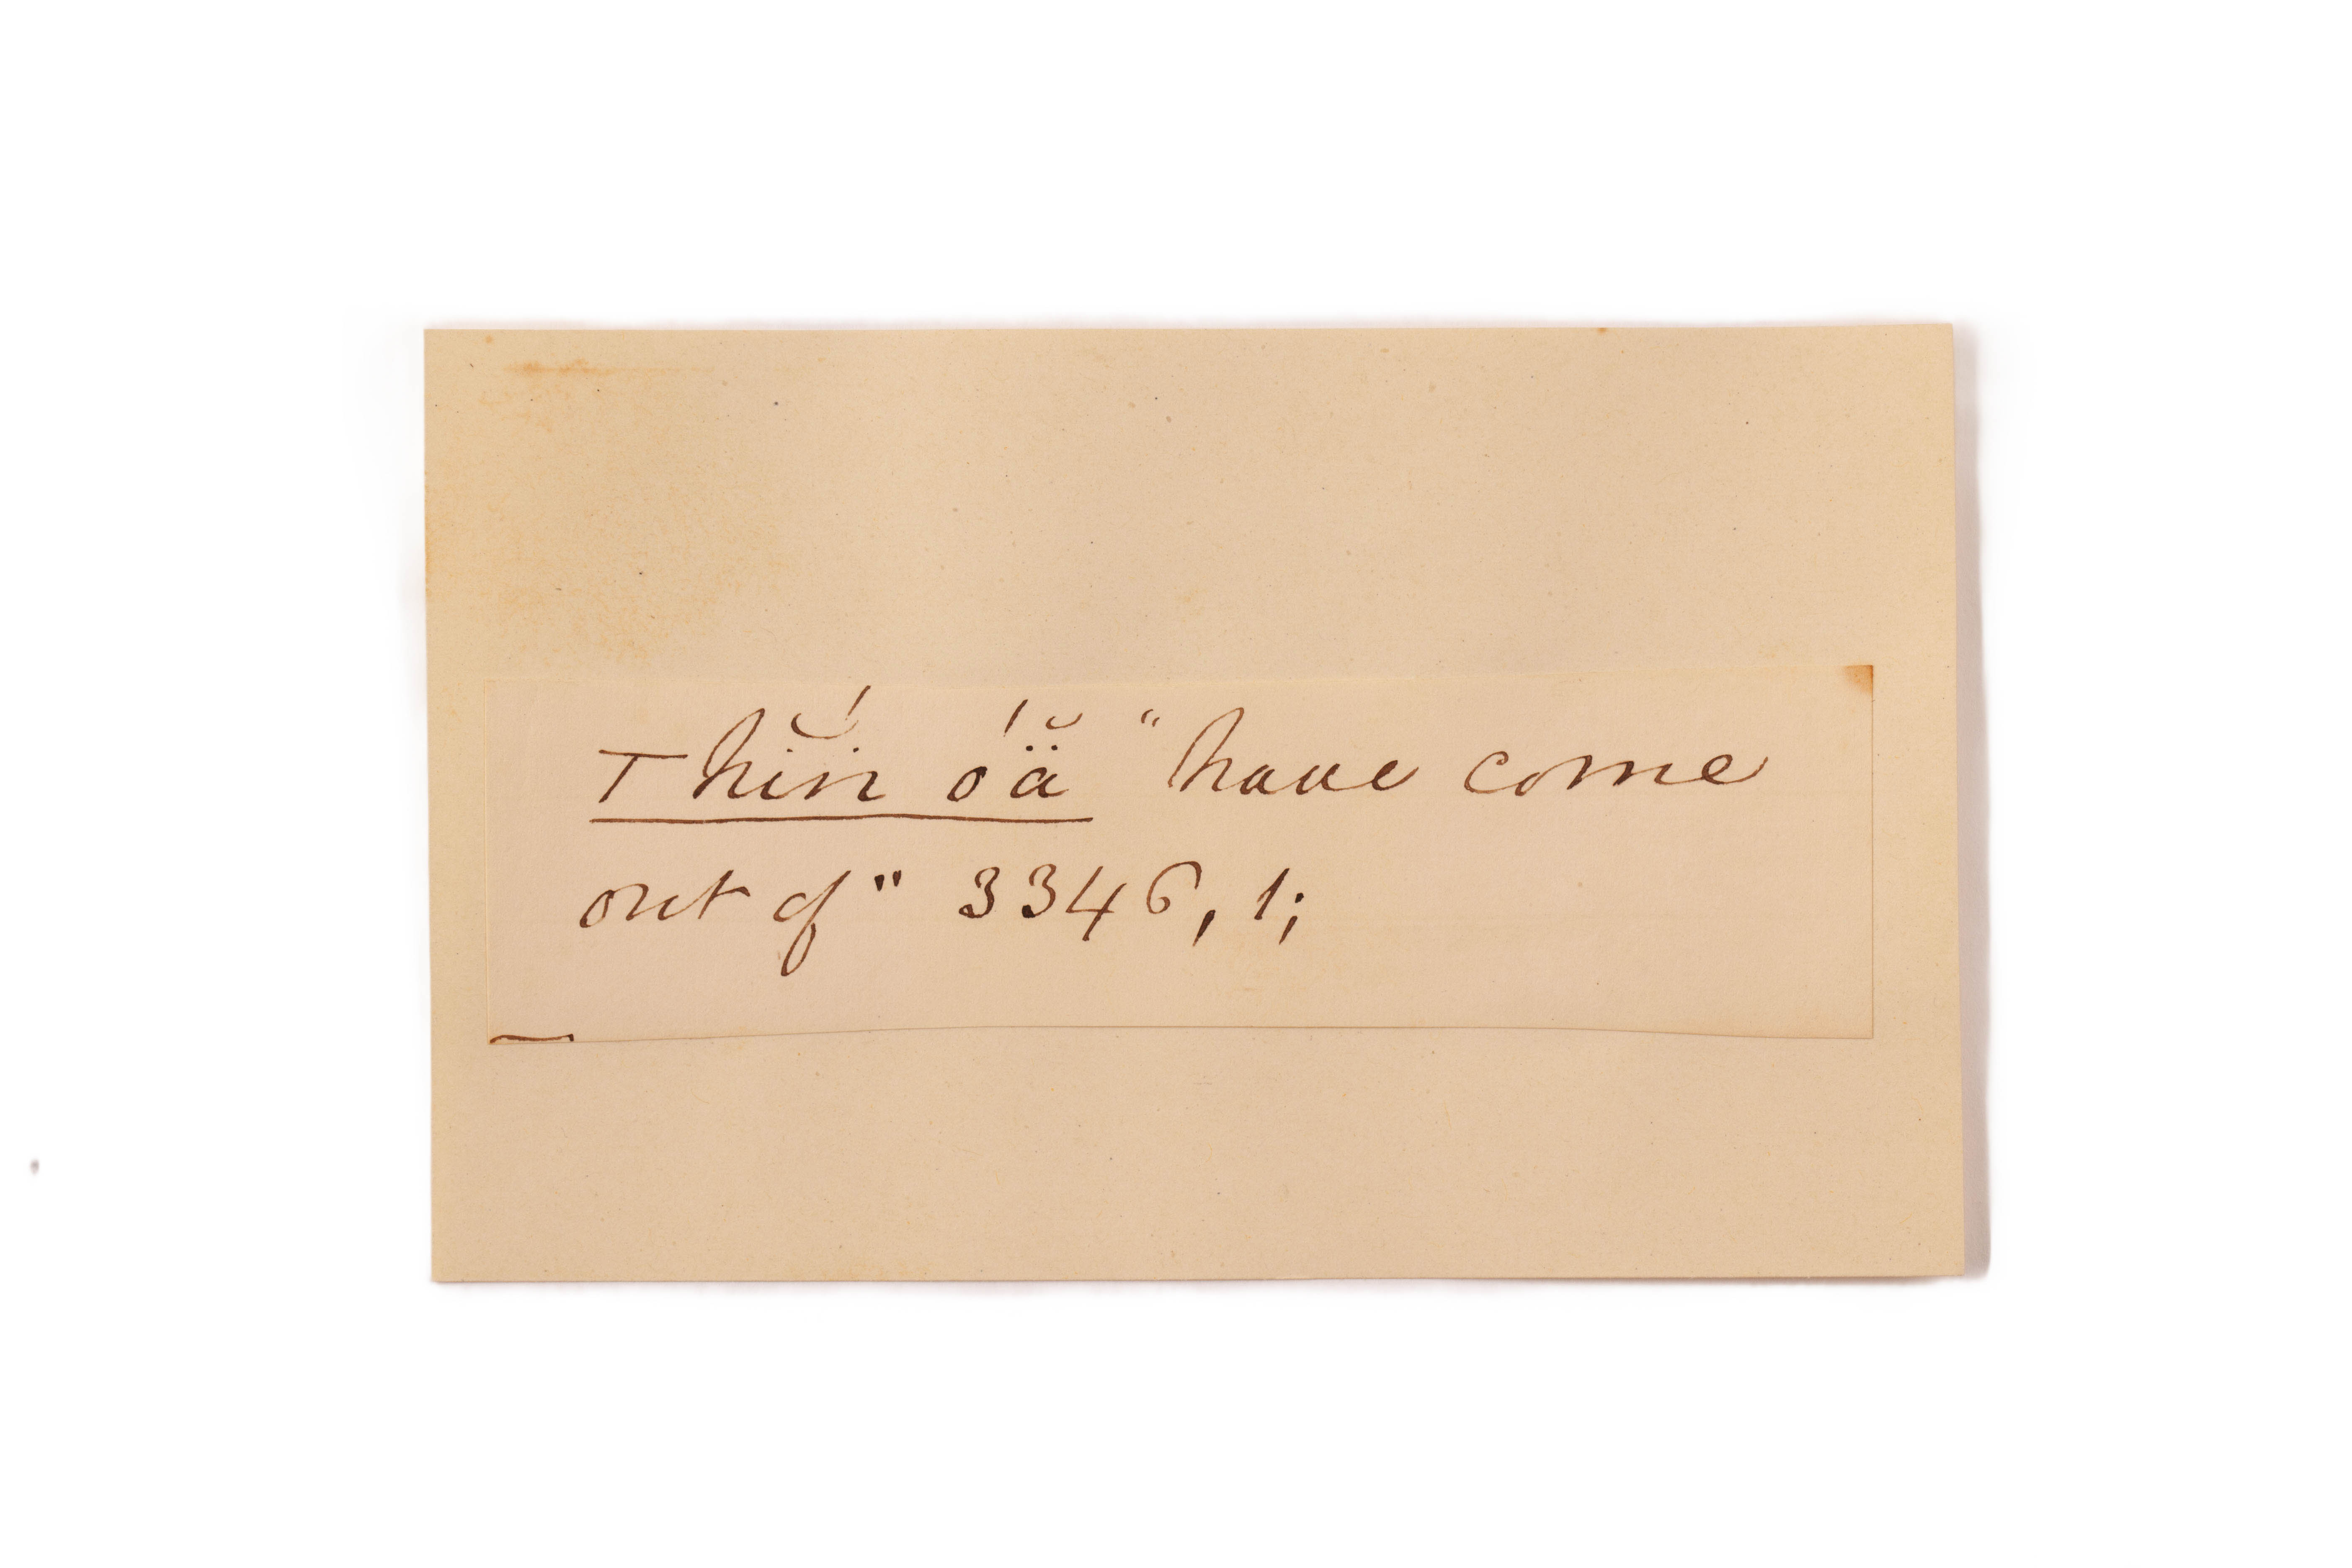 Thĭṅ́ óä̆ "have come
out of" 3346, 1;